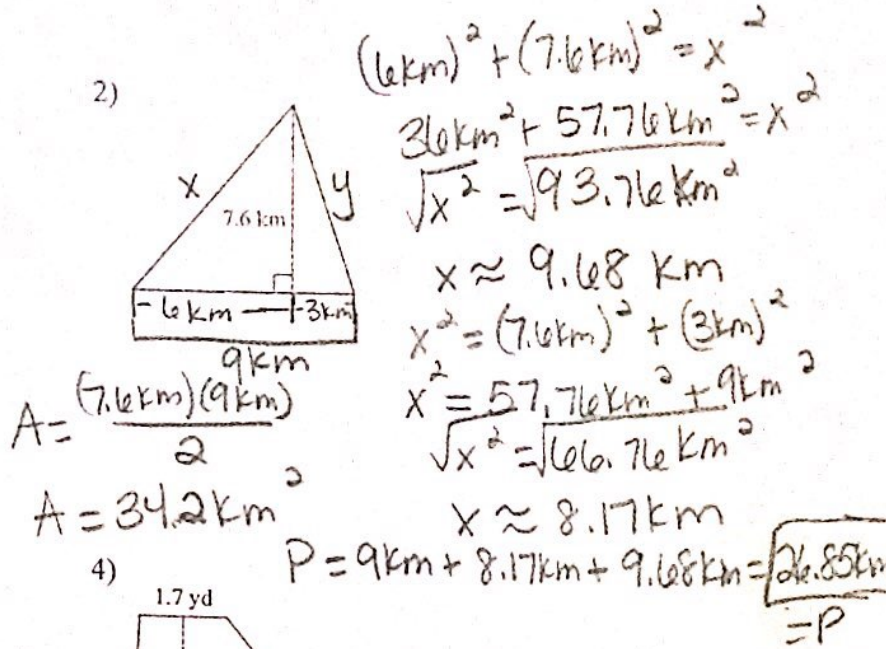 2)
x
7.6 km
y
6km
3km
9km
A = (7.6km)(9km) / 2
A = 34.2km²
(6km)² + (7.6km)² = x²
36km² + 57.76km² = x²
√x² = √93.76km²
x ≈ 9.68 km
x² = (7.6km)² + (3km)²
x² = 57.76km² + 9km²
√x² = √66.76km²
x ≈ 8.17km
P = 9km + 8.17km + 9.68km = 26.85km
= P
4)
1.7 yd